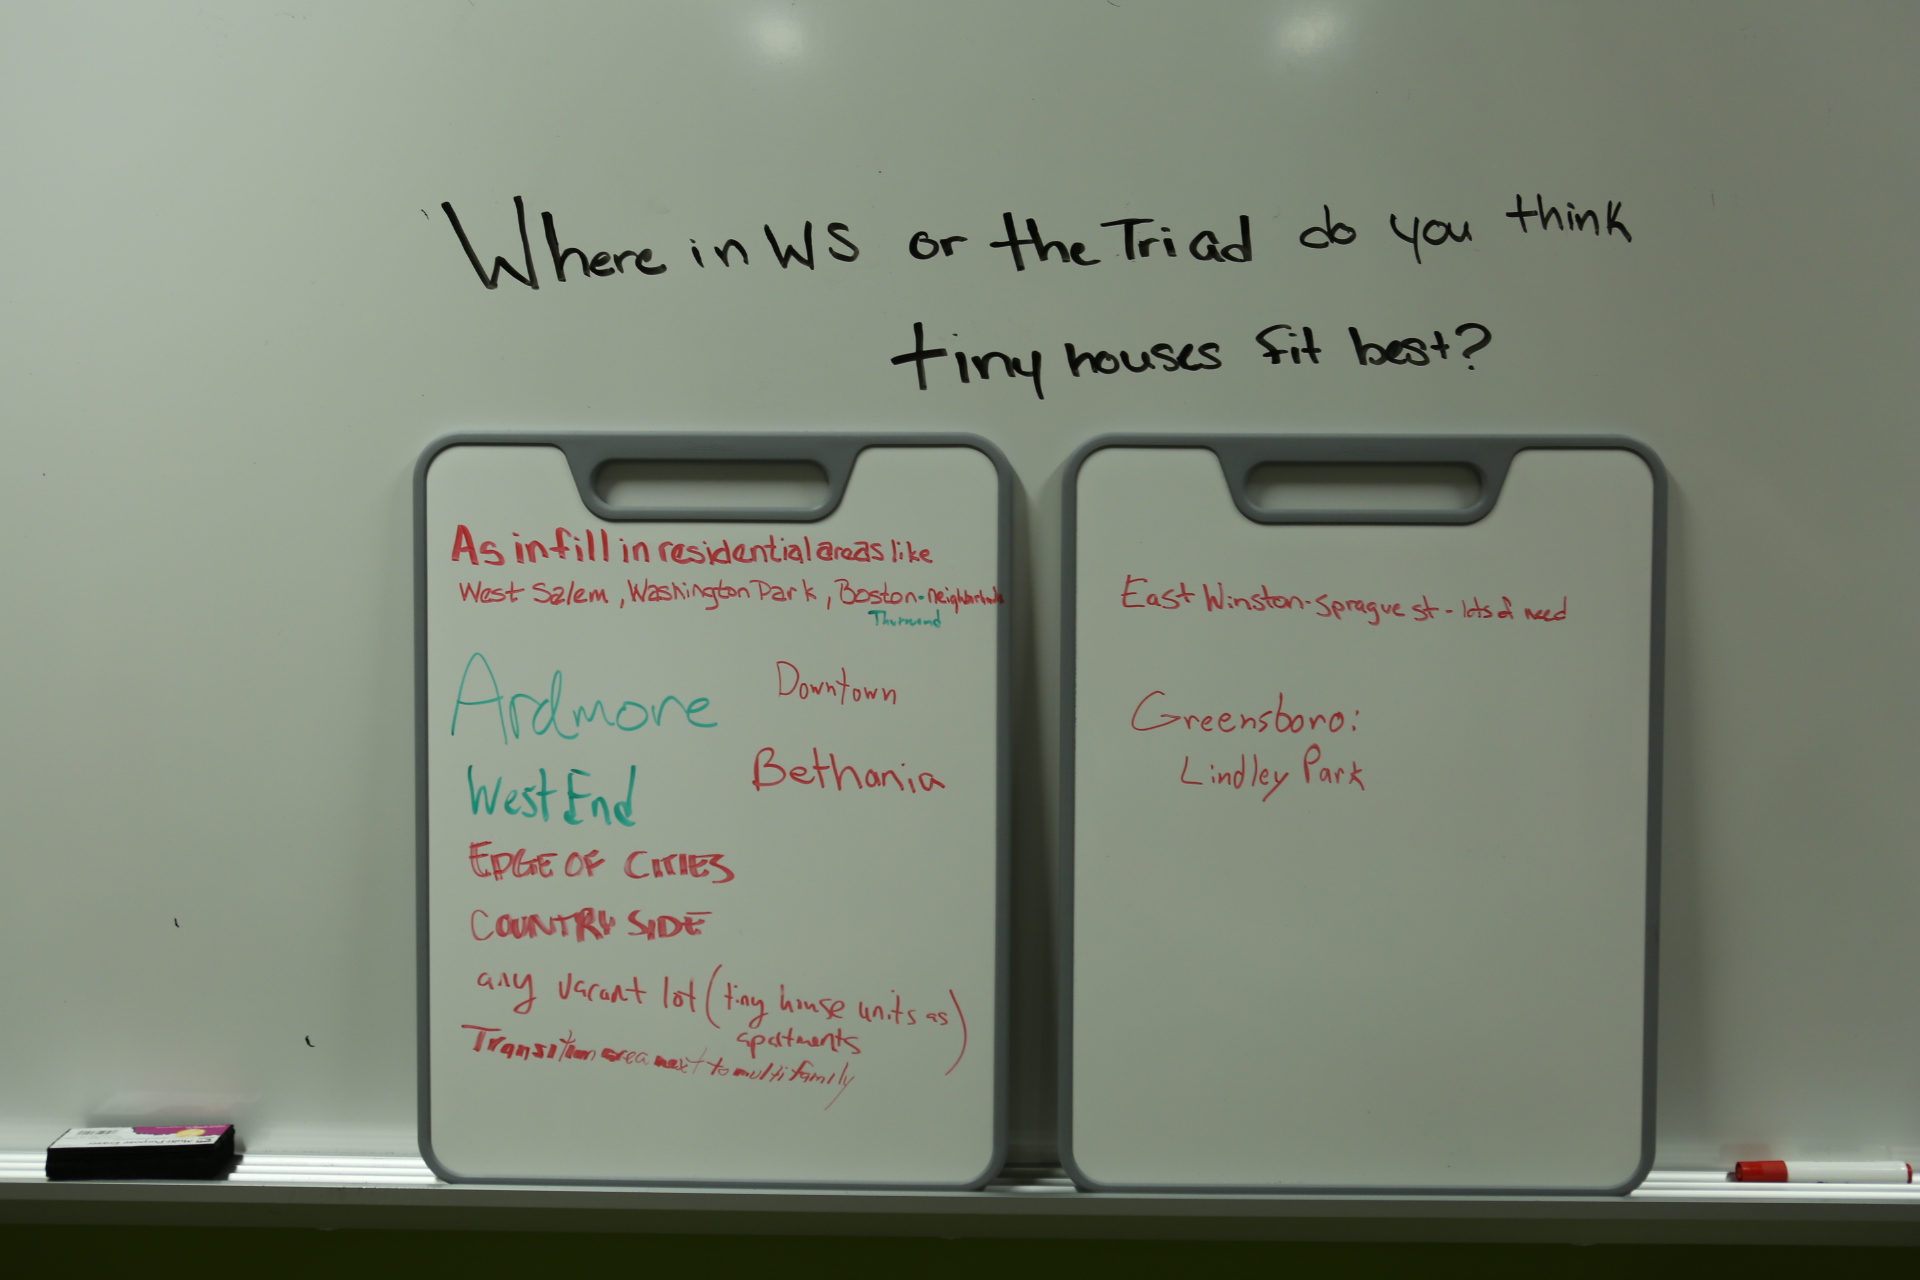 Where in WS or the Triad do you think
tiny houses fit best?
As infill in residential areas like
West Salem, Washington Park, Boston-neighborhoods
Ardmore
Downtown
West End
Bethania
EDGE OF CITIES
COUNTRY SIDE
any vacant lot (tiny house units as
apartments)
Transition area next to multifamily
East Winston-Sprague st - lots of need
Greensboro:
Lindley Park